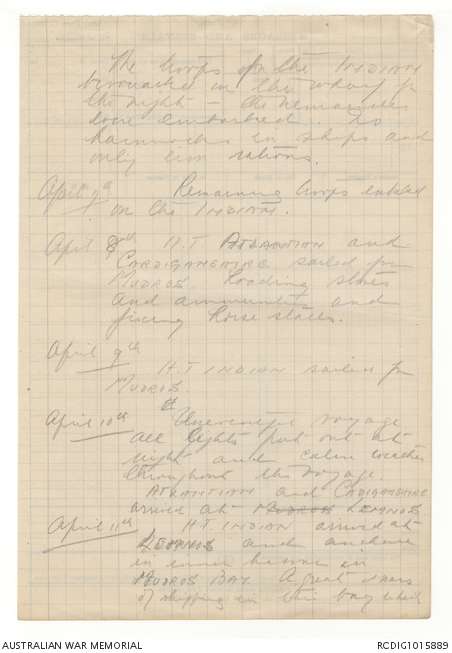 The troops for the INDIAN
bivouacked on the wharf for
the night - the remainder
were embarked. No
hammocks in ships and
only iron rations.
April 7th Remaining troops embkd
on the INDIAN.
April 8th H.T ATLANTIAN and
CARDIGANSHIRE sailed for
MUDROS. Loading stores
and ammunition and
fixing horse stalls.
April 9th
H.T INDIAN sailed for
MUDROS.
April 10th Uneventful voyage
all lights put out at
night and calm weather
throughout the voyage.
ATLANTIAN and CARDIGANSHIRE
arrived at MUDROS LEMNOS
April 11th H.T. INDIAN arrived at
LEMNOS and anchored
in inner harbour in
MUDROS BAY. A great mass
of shipping in this bay which
AUSTRALIAN WAR MEMORIAL
RCDIG1015889